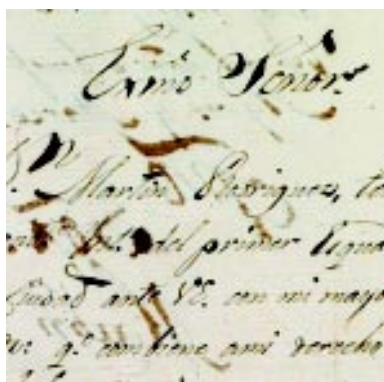 Exmô Señor.
D.n Martin Rodriguez, te
del primer
Ciudad ante VE. con mi mayo
q.e combiene ami derecho